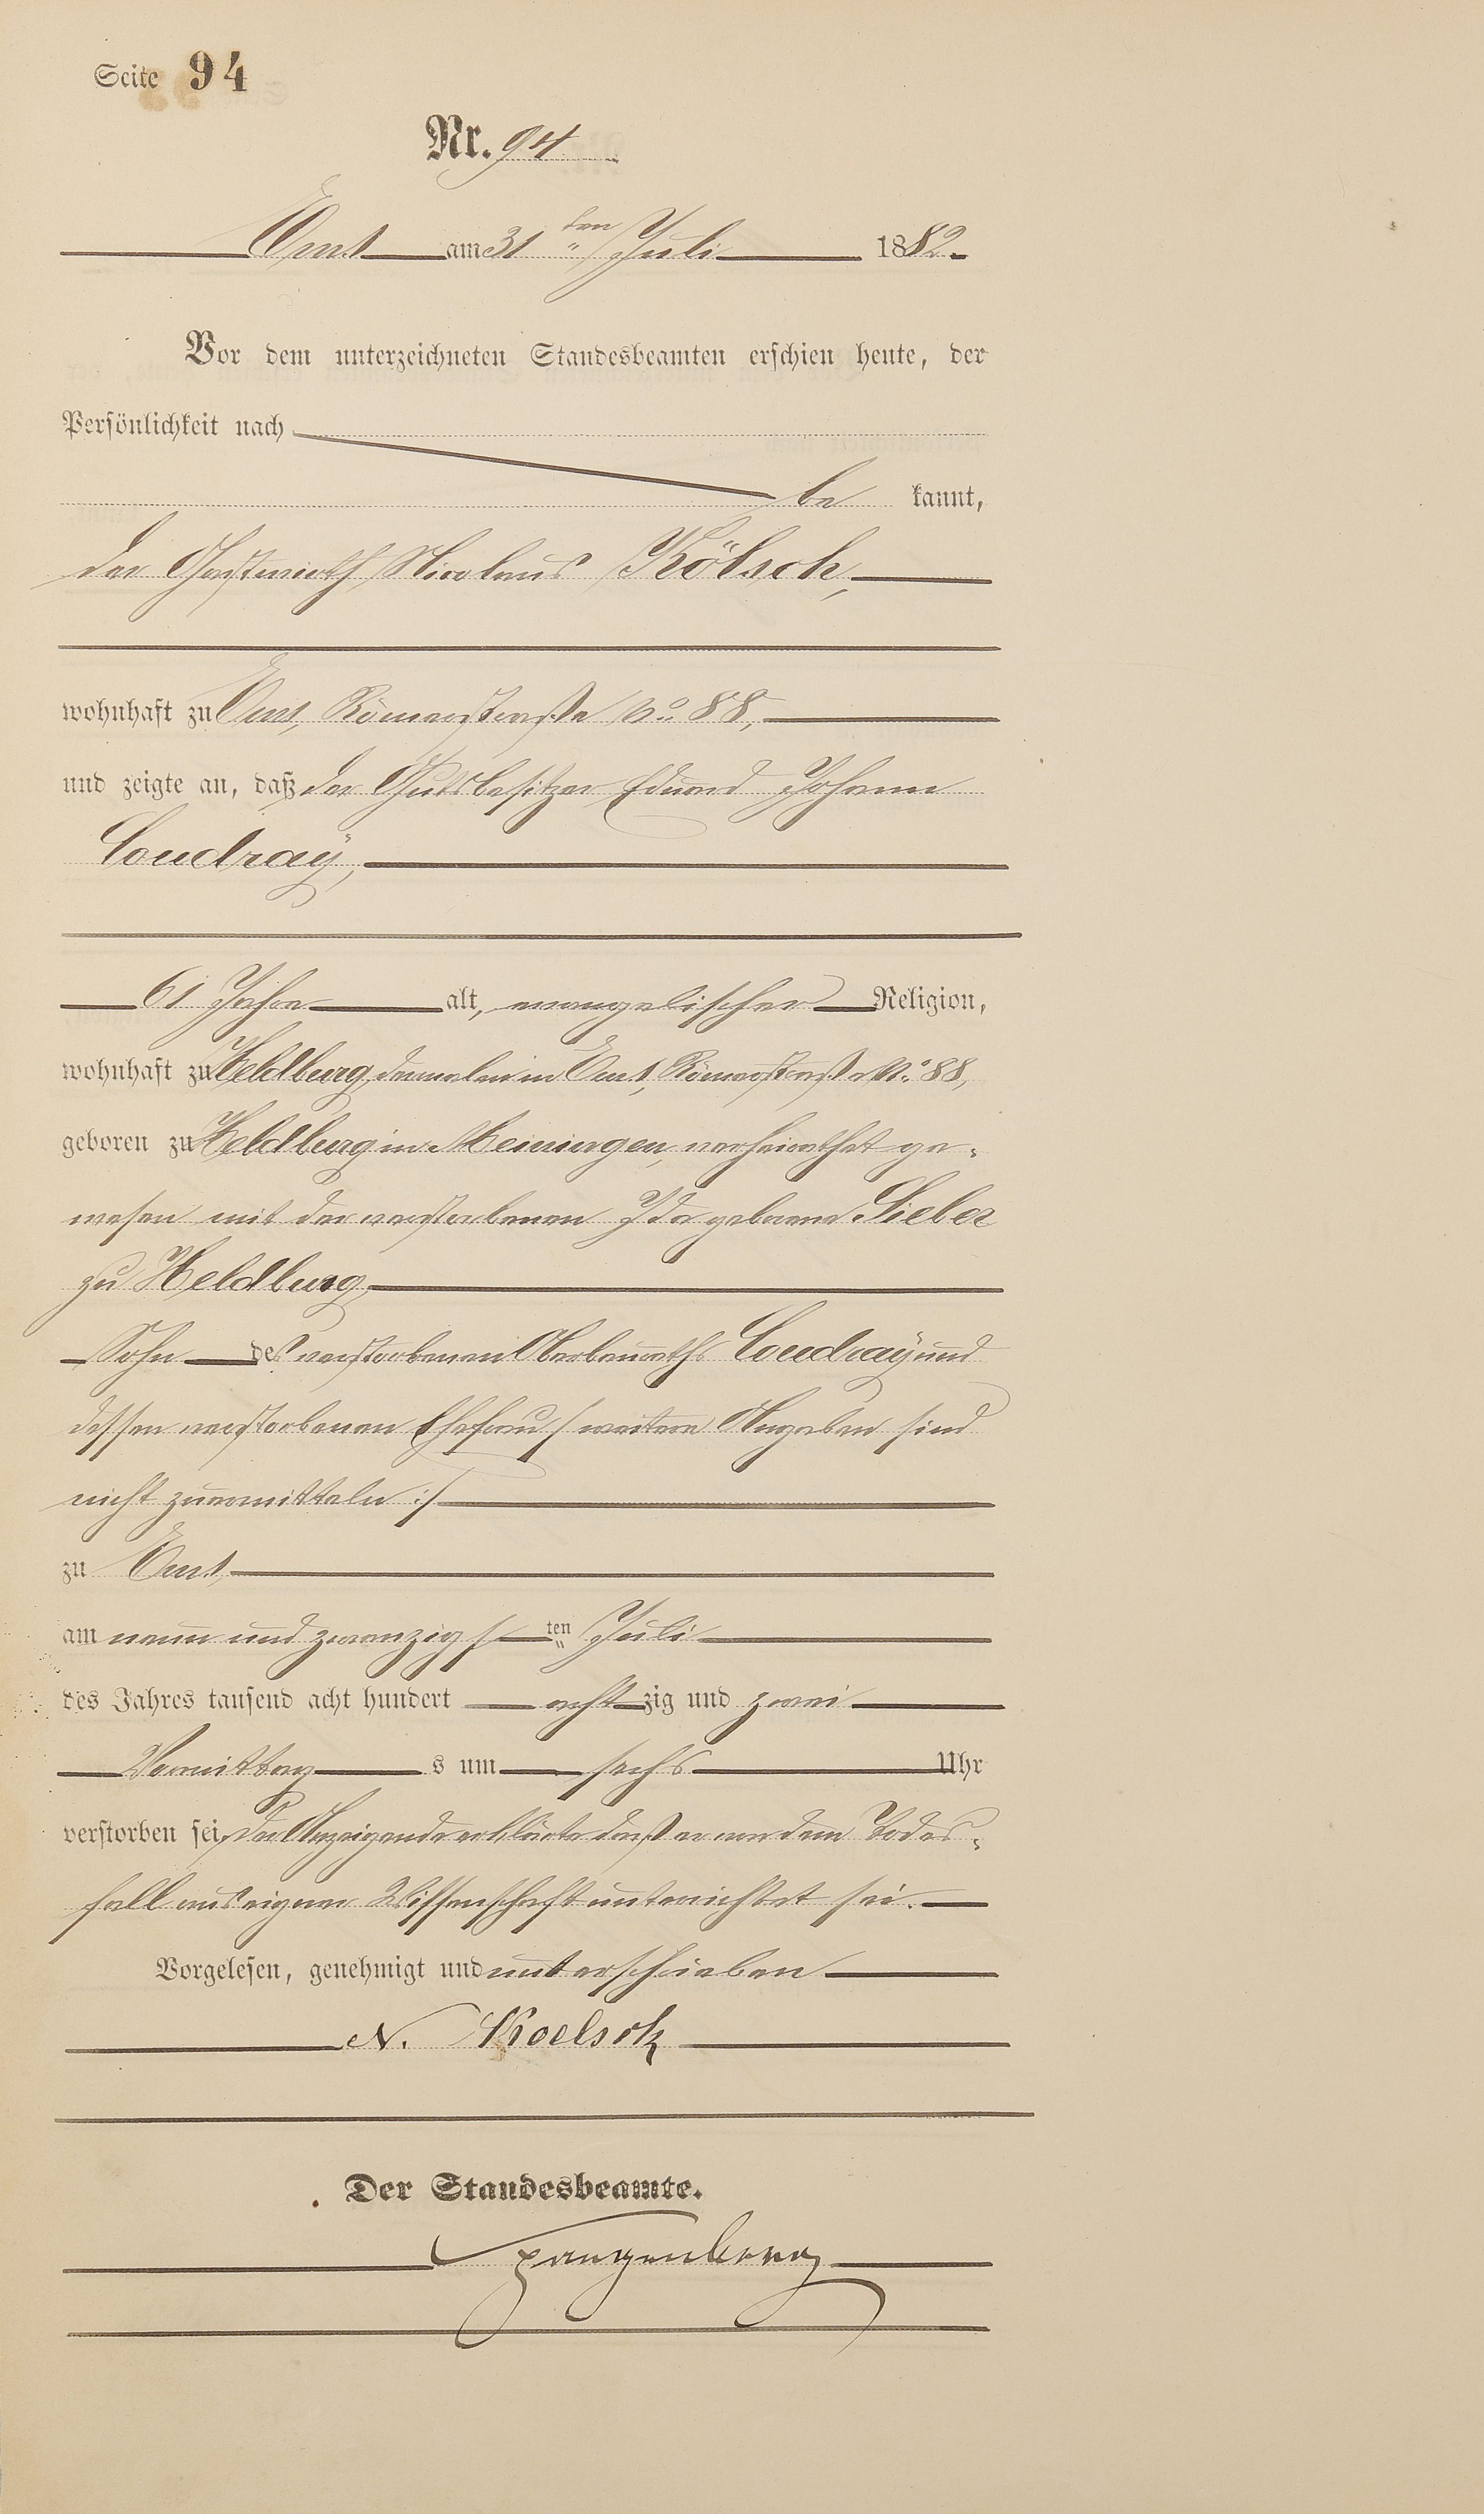 Seite 94
Nr. 94
Ems am 31ten Juli 1882.
Vor dem unterzeichneten Standesbeamten erschien heute, der
Persönlichkeit nach
be kannt,
der Gastwirth Nicolaus Kölsch,
wohnhaft zu Ems, Römerstraße No 88,
und zeigte an, daß der Gutsbesitzer Eduard Johann
Coudraÿ,
61 Jahre alt, evangelischer Religion,
wohnhaft zu Heldburg, dermalen in Ems, Römerstraße No 88,
geboren zu Heldburg in Meiningen, verheirathet ge-
wesen mit der verstorbenen Ida geborene Sieber
zu Heldburg,
Sohn des verstorbenen Oberbauraths Coudraÿ und
dessen verstorbenen Ehefrau /: weitere Angaben sind
nicht zu ermitteln :/
zu Ems,
am neun und zwanzigsten Juli
des Jahres tausend acht hundert achtzig und zwei
Vormittags um sechs Uhr
verstorben sei, Der Anzeigende erklärte daß er von dem Todes-
fall aus eigener Wissenschaft unterrichtet sei.
Vorgelesen, genehmigt und unterschrieben
N. Koelsch
Der Standesbeamte.
Spangenberg